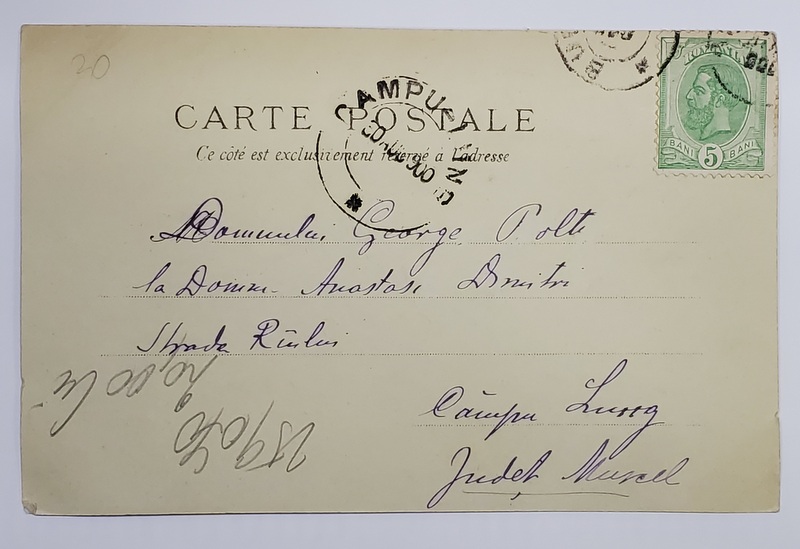 20
CARTE POSTALE
Ce côté est exclusivement réservé à l'adresse
CAMPULUNG
900
BANI 5 BANI
Domnului George Polti
la Domnu Anastase Dimitri
Strada Rîului
Câmpu Lung
Județ Muscel
20,00 lei